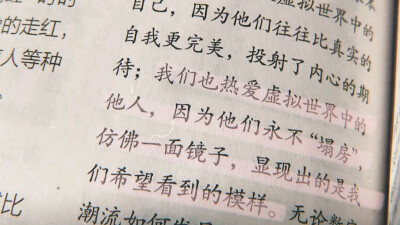 的走红，
人等种
比
自己，因为他们往往比真实的
自我更完美，投射了内心的期
待；我们也热爱虚拟世界中的
他人，因为他们永不“塌房”，
仿佛一面镜子，显现出的是我
们希望看到的模样。无论数字
潮流如何